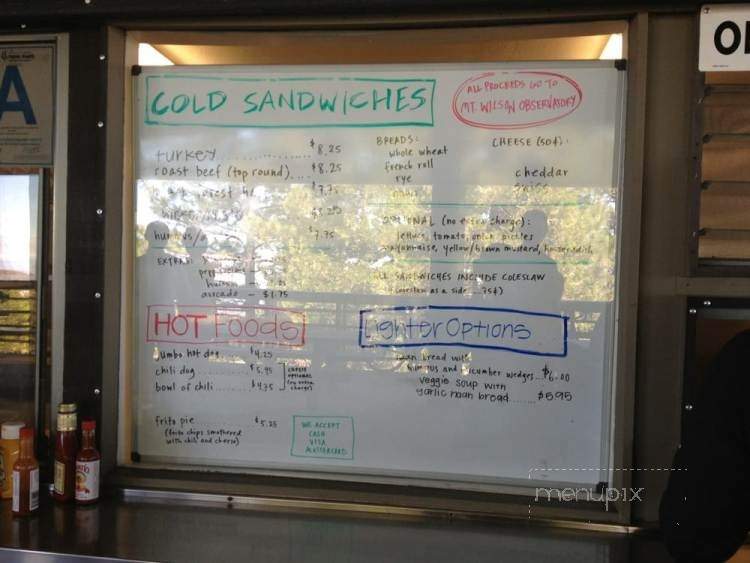 A
COLD SANDWICHES
ALL PROCEEDS GO TO
MT. WILSON OBSERVATORY
turkey ............... $8.25
roast beef (top round).... $8.25
$7.75
$8.25
hummus/ $7.75
EXTRAS:
avocado — $1.75
BREADS:
whole wheat
french roll
rye
CHEESE (50¢):
cheddar
swiss
OPTIONAL (no extra charge):
lettuce, tomato, onion, pickles
mayonnaise, yellow/brown mustard, horseradish
ALL SANDWICHES INCLUDE COLESLAW
(coleslaw as a side ... 75¢)
HOT FOODS
jumbo hot dog ... $4.25
chili dog ......... $5.95
bowl of chili ....... $4.75
cheese
optional
(no extra
charge)
frito pie $5.25
(frito chips smothered
with chili and cheese)
WE ACCEPT
CASH
VISA
MASTERCARD
Lighter Options
naan bread with
hummus and cucumber wedges... $6.00
veggie soup with
garlic naan bread...... $5.95
menupix